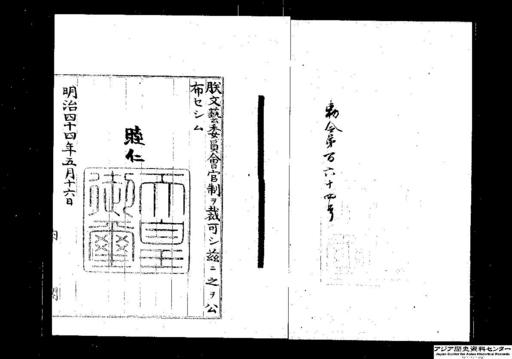 勅令第百六十四号
朕文藝委員會官制ヲ裁可シ茲ニ之ヲ公
布セシム
睦仁
天皇御璽
明治四十四年五月十六日
内閣
アジア歴史資料センター
Japan Center for Asian Historical Records